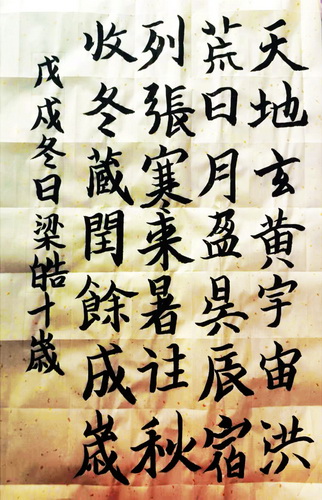 天地玄黄宇宙洪
荒日月盈昃辰宿
列張寒来暑往秋
收冬藏閏餘成歲
戊戌冬日梁皓十歲